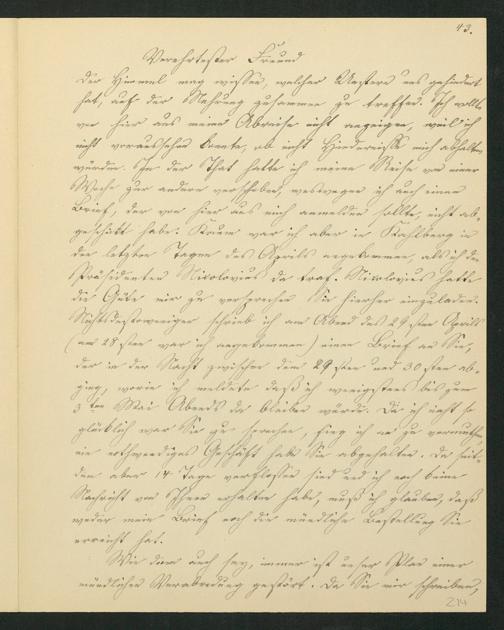 43.
Verehrtester Freund
Der Himmel mag wissen, welcher Unstern uns gehindert
hat, auf der Nehrung zusammen zu treffen. Ich wollte
von hier aus meine Abreise nicht anzeigen, weil ich
nicht voraussehen konnte, ob nicht Hindernisse mich abhalten
würden. In der That hatte ich meine Reise von einer
Woche zur andern verschoben, weswegen ich auch einen
Brief, der von hier aus mich anmelden sollte, nicht ab-
geschickt habe. Kaum war ich aber in Kahlberg in
den letzten Tagen des Aprils angekommen, als ich den
Präsidenten Nicolovius da traf. Nicolovius hatte
die Güte mir zu versprechen Sie hierher einzuladen.
Nichtsdestoweniger schrieb ich am Abend des 29sten Aprils
(am 28sten war ich angekommen) einen Brief an Sie,
der in der Nacht zwischen dem 29sten und 30sten ab-
ging, worin ich meldete daß ich wenigstens bis zum
3ten Mai Abends da bleiben würde. Da ich nicht so
glücklich war Sie zu sprechen, fing ich an zu vermuthen,
ein nothwendiges Geschäft habe Sie abgehalten. Da seit-
dem aber 14 Tage verflossen sind und ich noch keine
Nachricht von Ihnen erhalten habe, muß ich glauben, daß
weder mein Brief noch die mündliche Bestellung Sie
erreicht hat.
Wie dem auch sey, immer ist unser Plan einer
mündlichen Verabredung gestört. Da Sie mir schreiben,
214